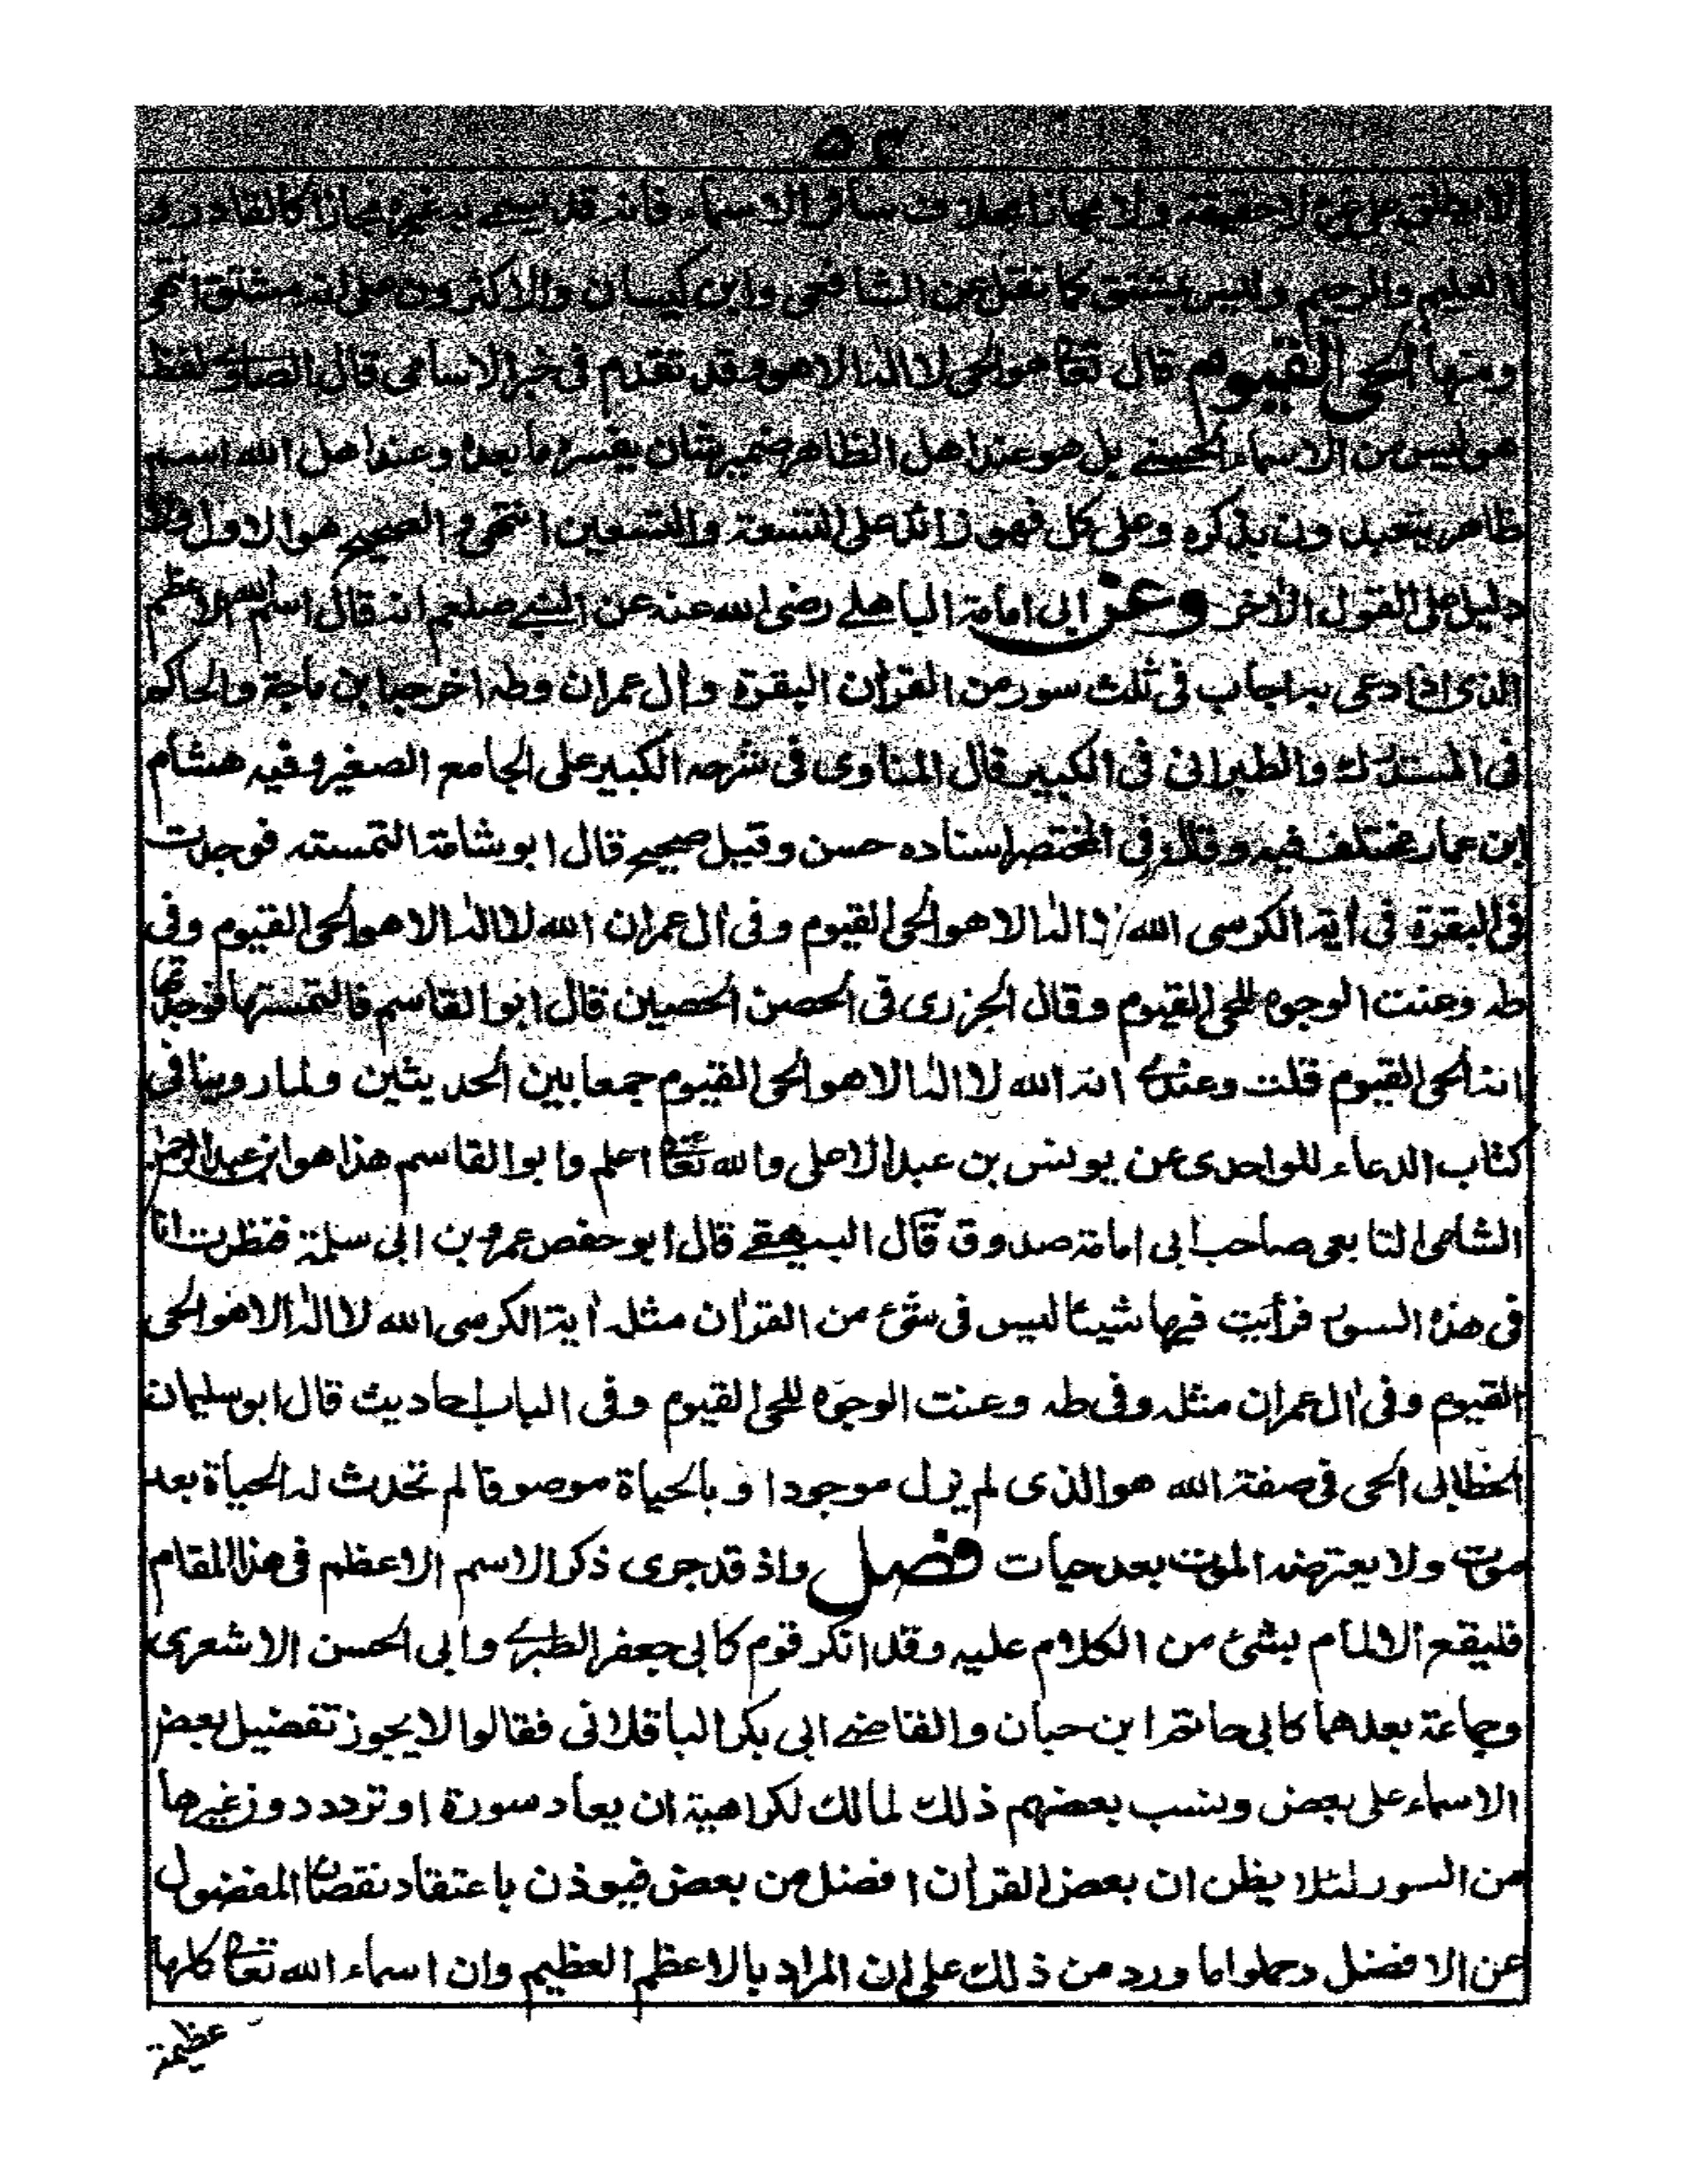 ٥٣
لا يطلق على غيره لا حقيقة ولا مجازا بخلاف سائر الاسماء فانه قد يسمى به غيره مجازا كالقادر و
العليم والرحيم وليس بمشتق كما نقل عن الشافعى وابن كيسان والاكثرون على انه مشتق انتهى
ومنها الحى القيوم قال تعالى هو الحى لا اله الا هو وقد تقدم فى خبر الاسامى قال الصاوى لفظ
هو ليس من الاسماء الحسنى بل هو عند اهل الظاهر ضمير شان يفسره ما بعده وعند اهل الله اسم
ظاهر يتعبدون بذكره وعلى كل فهو زائد على التسعة والتسعين انتهى والصحيح هو الاول ولا
دليل على القول الأخر وعن ابى امامة الباهلى رضى الله عنه عن النبى صلعم انه قال اسم الله الاعظم
الذى اذا دعى به اجاب فى ثلث سور من القرأن البقرة وأل عمران وطه اخرجه ابن ماجة والحاكم
فى المستدرك والطبرانى فى الكبير قال المناوى فى شرحه الكبير على الجامع الصغير وفيه هشام
ابن عمار مختلف فيه وقال فى المختصر اسناده حسن وقيل صحيح قال ابو شامة التمسته فوجدت
فى البقرة فى أية الكرسى الله لا اله الا هو الحى القيوم وفى أل عمران الله لا اله الا هو الحى القيوم وفى
طه وعنت الوجوه للحى القيوم وقال الجزرى فى الحصن الحصين قال ابو القاسم فالتمستها فوجدتها
انه الحى القيوم قلت وعندى انه الله لا اله الا هو الحى القيوم جمعا بين الحديثين ولما روينا فى
كتاب الدعاء للواحدى عن يونس بن عبد الاعلى والله تعالى اعلم وابو القاسم هذا هو ابن عبد الرحمن
الشامى التابعى صاحب ابى امامة صدوق قال البيهقى قال ابو حفص عمرو بن ابى سلمة فنظرت انا
فى هذه السور فرأيت فيها شيئا ليس فى شئ من القرأن مثله أية الكرسى الله لا اله الا هو الحى
القيوم وفى أل عمران مثله وفى طه وعنت الوجوه للحى القيوم وفى الباب احاديث قال ابو سليمان
الخطابى الحى فى صفة الله هو الذى لم يزل موجودا وبالحياة موصوفا لم تحدث له الحياة بعد
موت ولا يعترضه الموت بعد حيات فصل واذ قد جرى ذكر الاسم الاعظم فى هذا المقام
فليقع الالمام بشئ من الكلام عليه وقد انكر قوم كابى جعفر الطبرى وابى الحسن الاشعرى
وجماعة بعدهما كابى حاتم ابن حبان والقاضى ابى بكر الباقلانى فقالوا لا يجوز تفضيل بعض
الاسماء على بعض ونسب بعضهم ذلك لمالك لكراهية ان يعاد سورة او تردد دون غيرها
من السور لئلا يظن ان بعض القرأن افضل من بعض فيوذن باعتقاد نقصان المفضول
عن الافضل وحملوا ما ورد من ذلك على ان المراد بالاعظم العظيم وان اسماء الله تعالى كلها
عظيمة